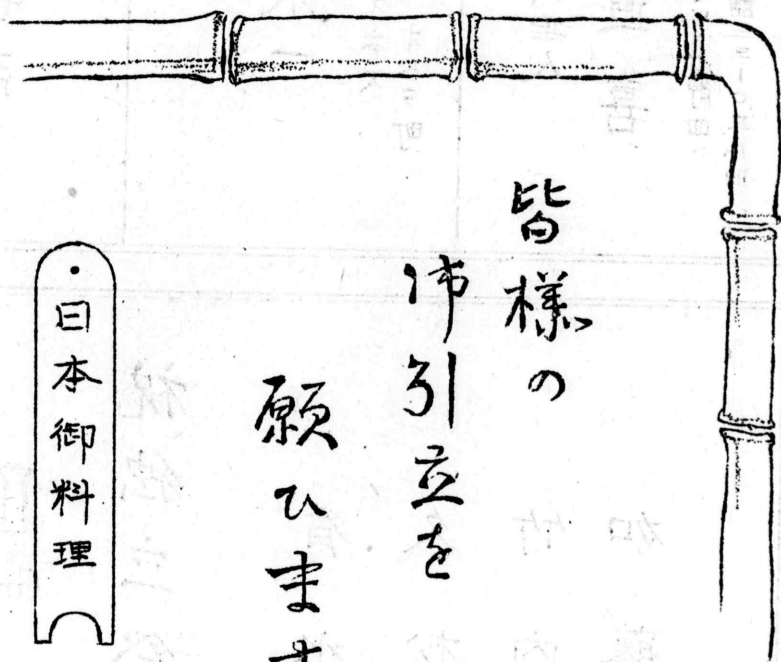 皆様の
御引立を
願ひます
日本御料理